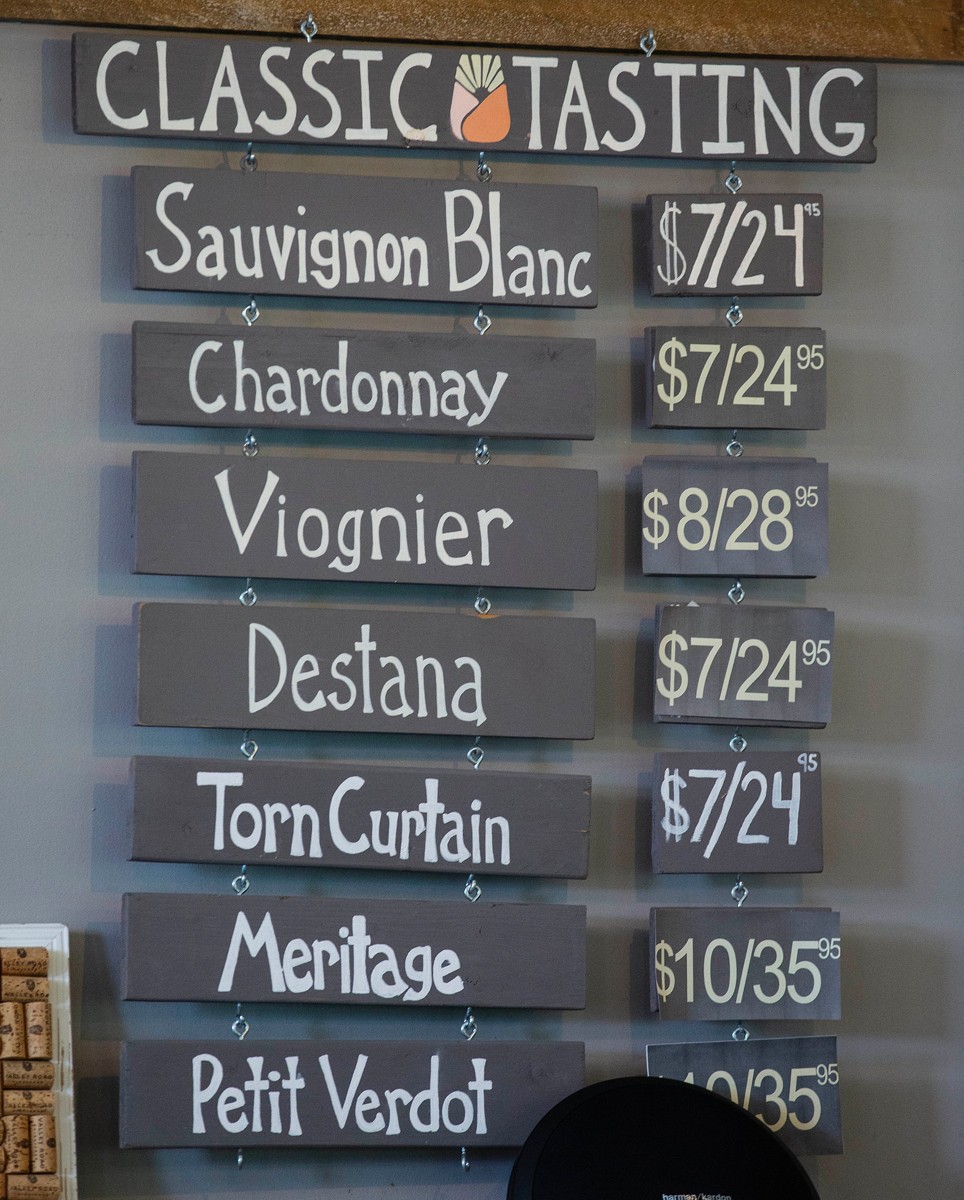 CLASSIC TASTING
Sauvignon Blanc $7/24 95
Chardonnay $7/24 95
Viognier $8/28 95
Destana $7/24 95
Torn Curtain $7/24 95
Meritage $10/35 95
Petit Verdot 10/35 95
harman/kardon